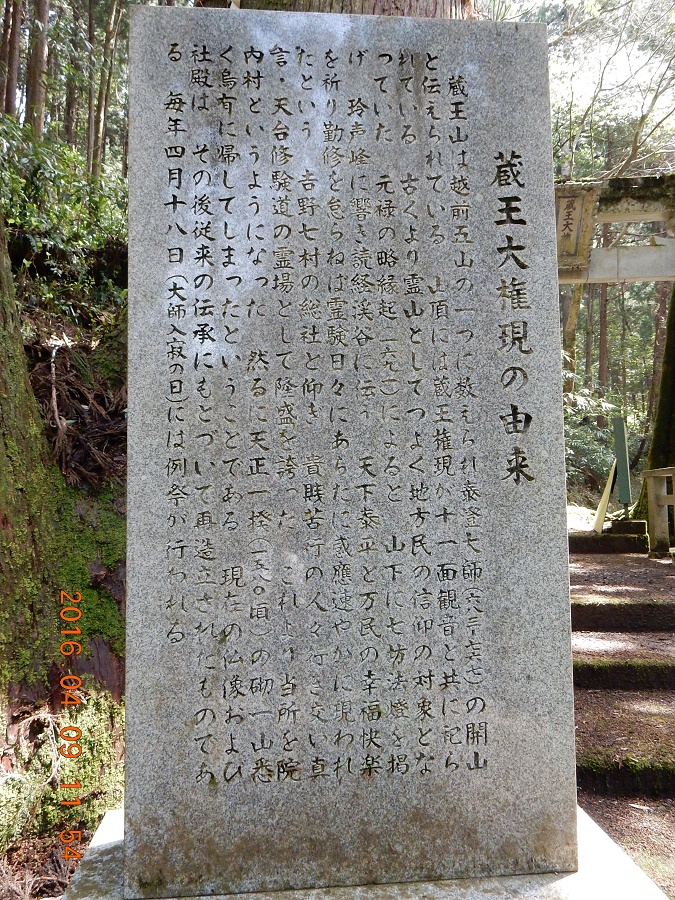 蔵王大権現の由来
蔵王山は越前五山の一つに数えられ泰澄大師(六八二〜七六七)の開山
と伝えられている 山頂には蔵王権現が十一面観音と共に祀ら
れている 古くより霊山としてつよく地方民の信仰の対象とな
つていた 元禄の略縁起(一六九一)によると 山下に七坊法燈を掲
げ 玲声峰に響き読経渓谷に伝う 天下泰平と万民の幸福快楽
を祈り勤修を怠らねば霊験日々にあらたに感應速やかに現われ
たという 吉野七村の総社と仰ぎ 貴賎苦行の人々行き交い真
言・天台修験道の霊場として隆盛を誇った これより当所を院
内村というようになった 然るに天正一揆(一五八〇頃)の砌一山悉
く烏有に帰してしまったということである 現在の仏像および
社殿は その後従来の伝承にもとづいて再造立されたものであ
る 毎年四月十八日(大師入寂の日)には例祭が行われる
蔵王大権
2016 04 09 11 54